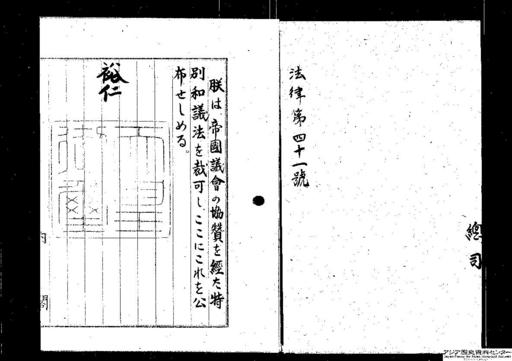 法律第四十一號
總司
朕は帝國議會の協賛を經た特
別和議法を裁可し、ここにこれを公
布せしめる。
裕仁
内閣
アジア歴史資料センター